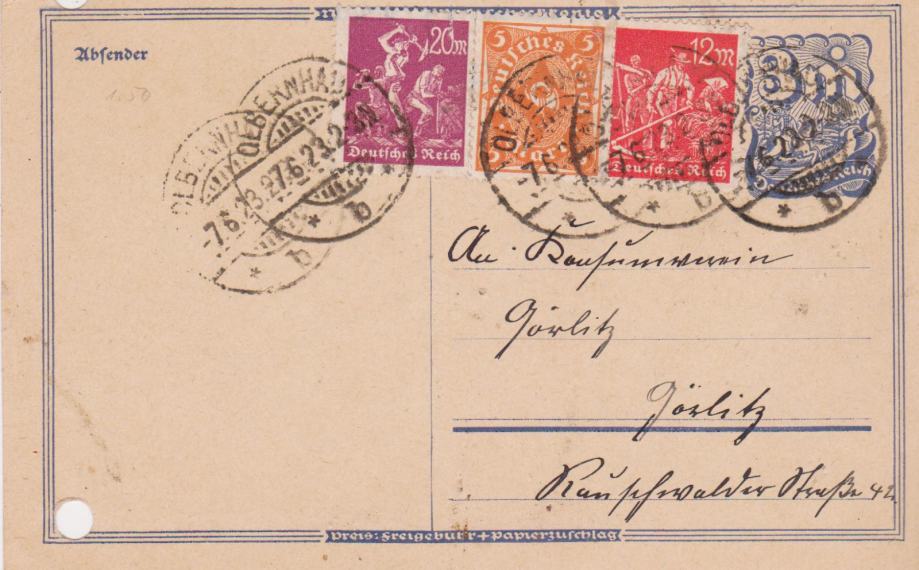 Absender
1.50
20M
Deutsches Reich
5 5
Deutsches Reich
5
12M
Deutsches Reich
3
Reich
OLBERNHAU
-7.6.23.2
* b
OLBERNHAU
7.6.23.2
* b
-7.6.2
*
7.6.23
* b
6.23.2
* b
An Konsumverein
Görlitz
Görlitz
Rauschwalder Straße 42
Preis: Freigebühr + Papierzuschlag